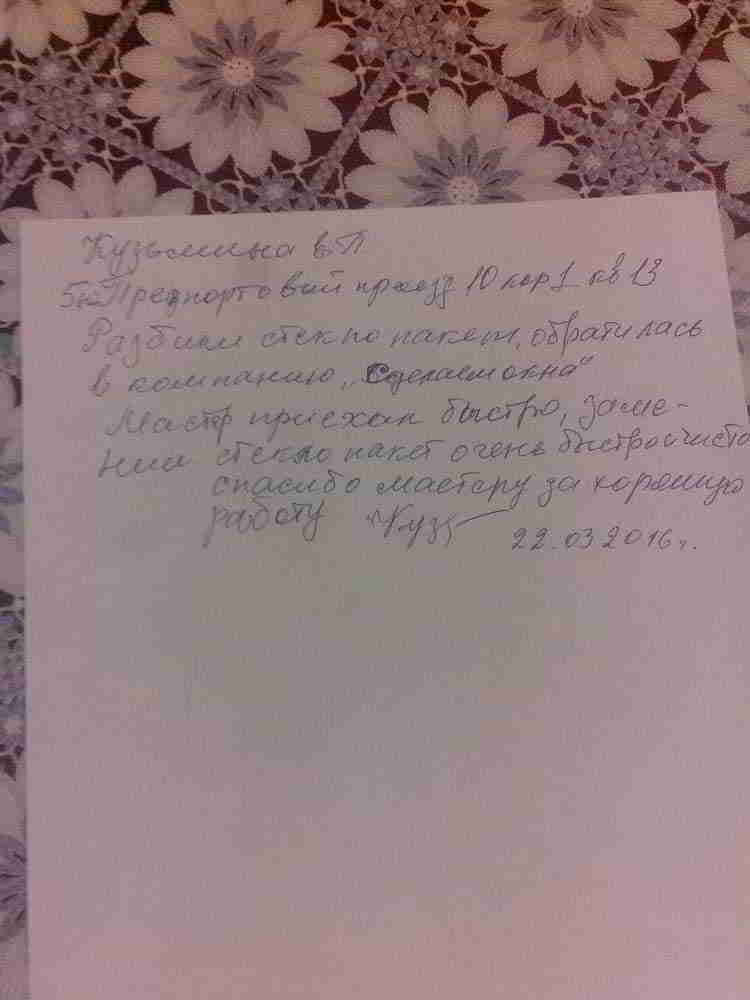 Кузьмина в.П
5й Предпортовый проезд 10 кор 1 кв 13
Разбили стекло пакет, обратилась
в компанию „Сделаем окна"
Мастр приехал быстро, заме-
нил стекло пакет очень быстро и чисто
спасибо мастеру за хорошую
работу Куз
22.03 2016 г.